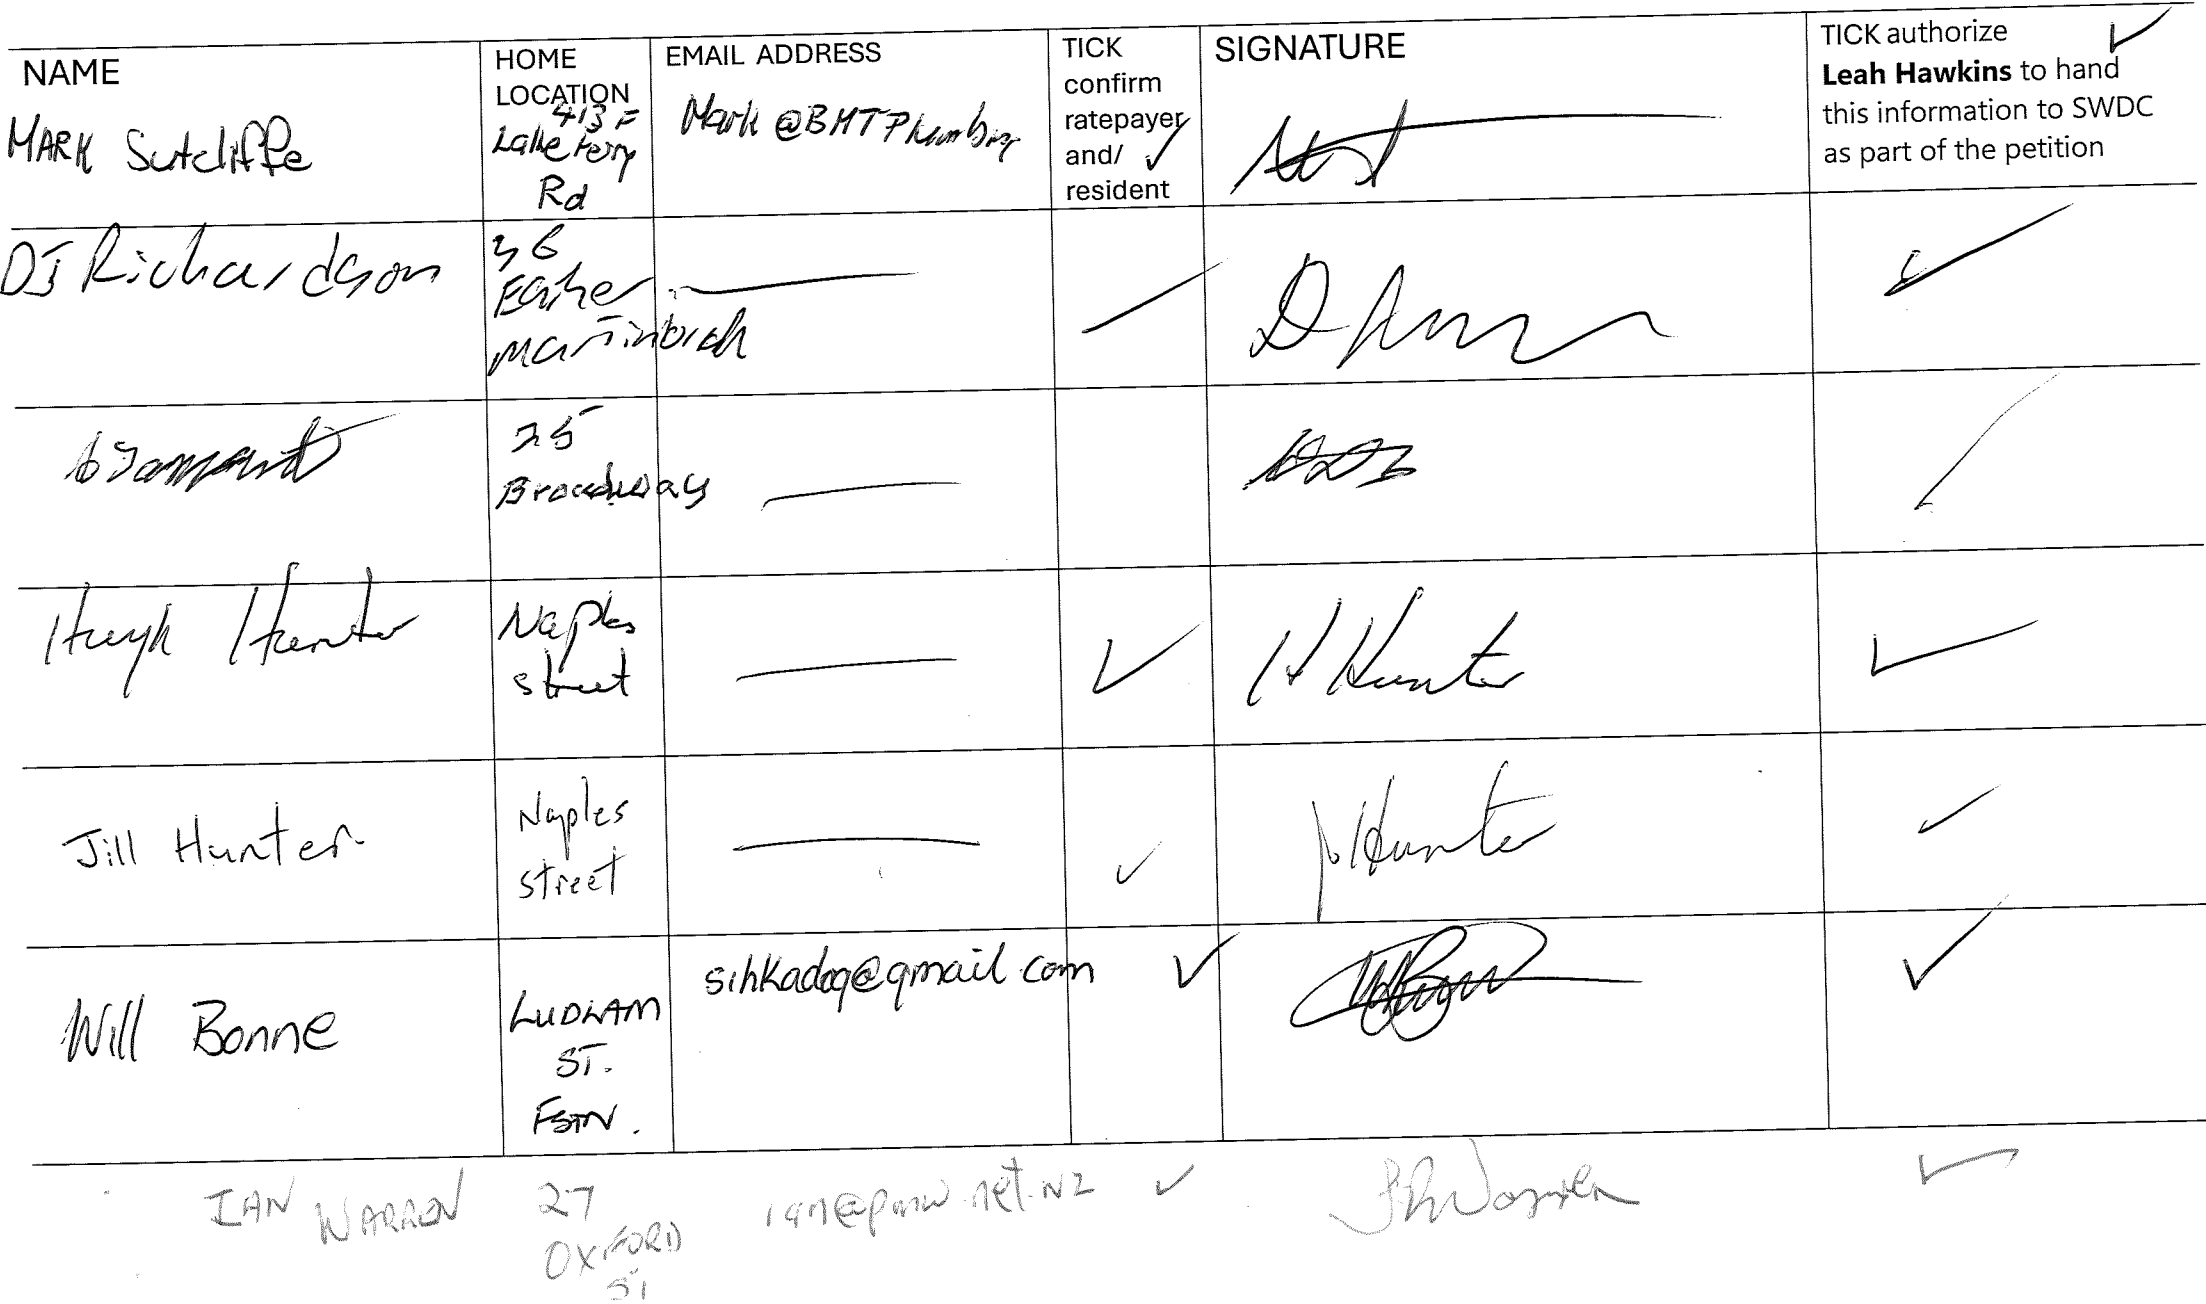 NAME
HOME
LOCATION
EMAIL ADDRESS
TICK
confirm
ratepayer
and/
resident
SIGNATURE
TICK authorize
Leah Hawkins to hand
this information to SWDC
as part of the petition
MARK Sutcliffe
413 F
Lake Ferry
Rd
Mark@BMTPlumbing
DJ Richardson
36
Esther
Martinborough
25
Broadway
Hugh Hunter
Naples
street
H Hunter
Jill Hunter
Naples
street
J Hunter
Will Bonne
LUDLAM
ST.
FSTN.
sihkadog@gmail.com
IAN WARREN
27
OXFORD
ST
ian@pmw.net.nz